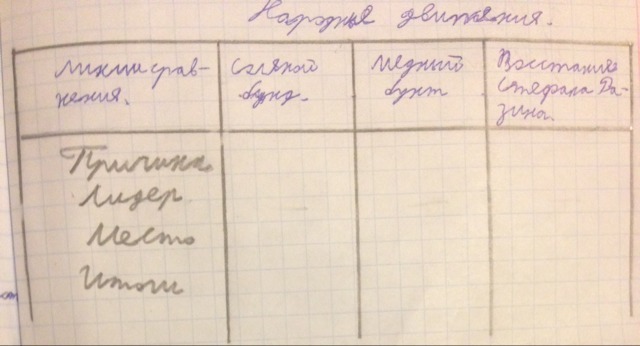 Народные движения.
Линии срав-
нения.
Соляной
бунд.
Медный
бунт
Восстание
Степана Ра-
зина.
Причина
Лидер
Место
Итоги